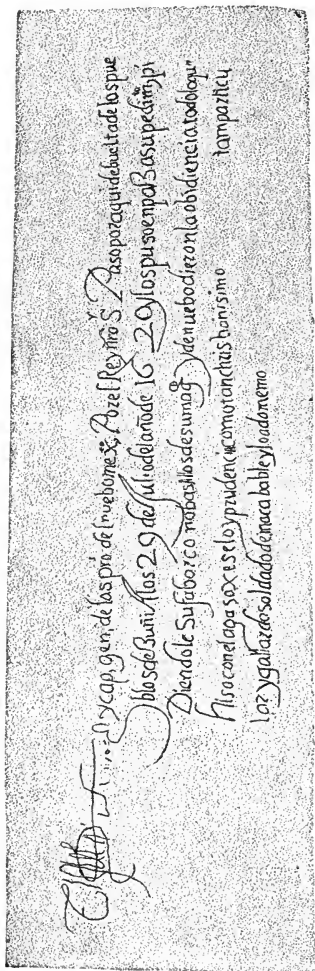 y cap. gen. de las pro. de l nuebo mexco Por el Rey nro Sr. Paso por aqui de buelta de los pue
blos de Zuñi A los 29 de Julio del año de 1629 y los puso en paz a su pedimto pi
Diendole su fabor como basallos de su magd y de nuebo dieron la obidiencia todo lo qu
hiso con el agasaxe selo y prudencia como tan christianisimo tam particu
lar y gallardo soldado de inacabable y loada memo